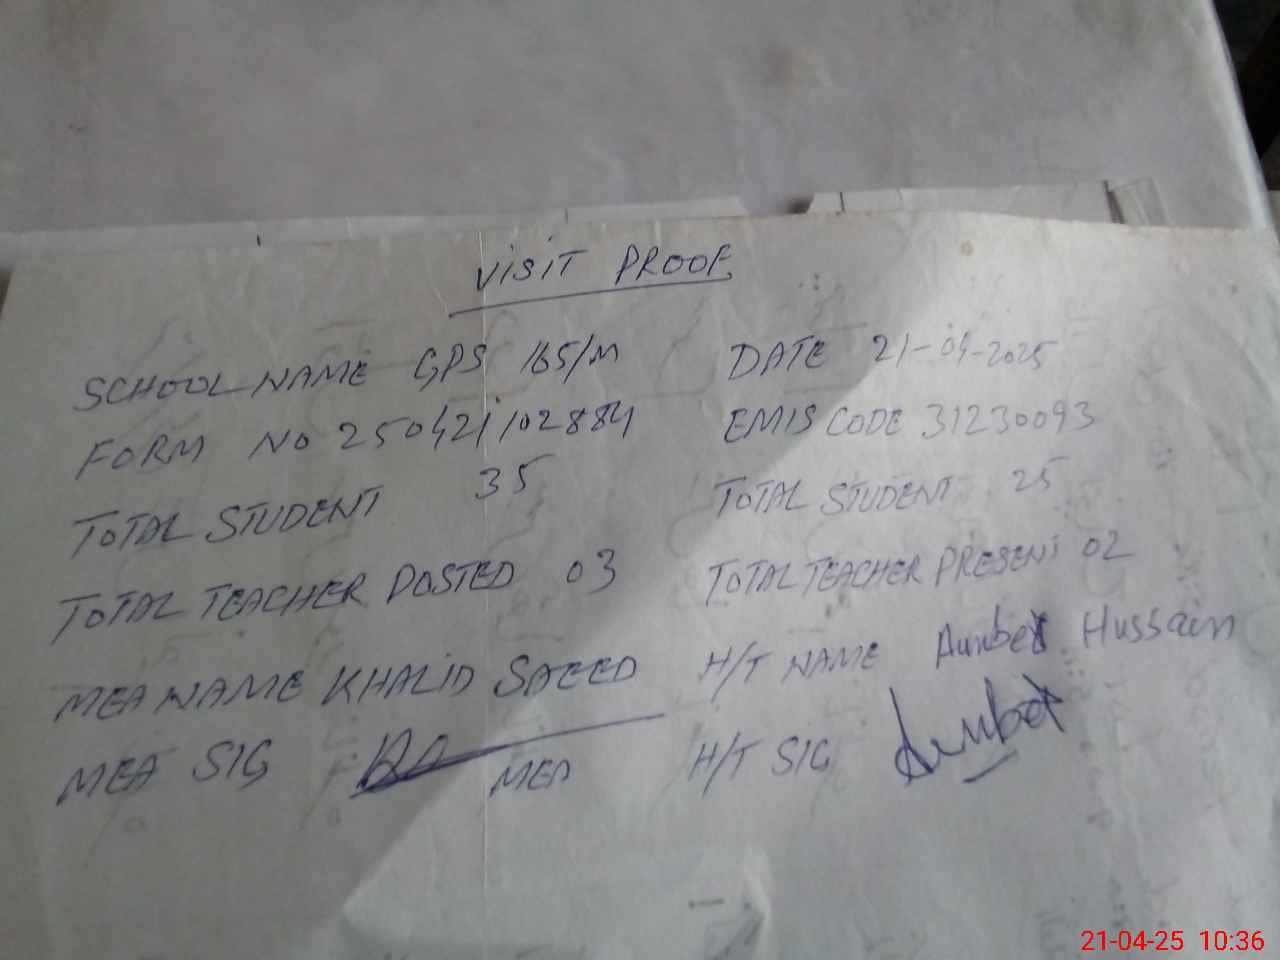 VISIT PROOF
SCHOOL NAME GPS 165/M DATE 21-04-2025
FORM NO 250421102884 EMIS CODE 31230093
TOTAL STUDENT 35 TOTAL STUDENT 25
TOTAL TEACHER POSTED 03 TOTAL TEACHER PRESENT 02
MEA NAME KHALID SAEED H/T NAME Hussain
MEA SIG MEA H/T SIG
21-04-25 10:36